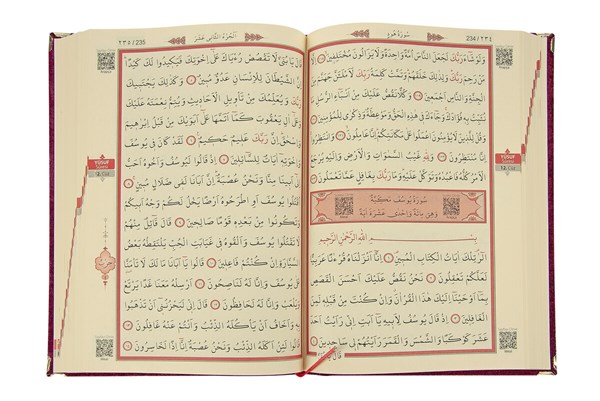 ٢٣٤ / 234
سُورَةُ هُودٍ
وَلَوْ شَاءَ رَبُّكَ لَجَعَلَ النَّاسَ اُمَّةً وَاحِدَةً وَلَا يَزَالُونَ مُخْتَلِفِينَ ﴿١١٨﴾
اِلَّا مَنْ رَحِمَ رَبُّكَ وَلِذٰلِكَ خَلَقَهُمْ وَتَمَّتْ كَلِمَةُ رَبِّكَ لَاَمْلَئَنَّ جَهَنَّمَ مِنَ
الْجِنَّةِ وَالنَّاسِ اَجْمَعِينَ ﴿١١٩﴾ وَكُلًّا نَقُصُّ عَلَيْكَ مِنْ اَنْبَاءِ الرُّسُلِ مَا
نُثَبِّتُ بِهِ فُؤَادَكَ وَجَاءَكَ فِي هٰذِهِ الْحَقُّ وَمَوْعِظَةٌ وَذِكْرٰى لِلْمُؤْمِنِينَ ﴿١٢٠﴾
وَقُلْ لِلَّذِينَ لَا يُؤْمِنُونَ اعْمَلُوا عَلٰى مَكَانَتِكُمْ اِنَّا عَامِلُونَ ﴿١٢١﴾ وَانْتَظِرُوا
اِنَّا مُنْتَظِرُونَ ﴿١٢٢﴾ وَلِلّٰهِ غَيْبُ السَّمٰوَاتِ وَالْاَرْضِ وَاِلَيْهِ يُرْجَعُ
الْاَمْرُ كُلُّهُ فَاعْبُدْهُ وَتَوَكَّلْ عَلَيْهِ وَمَا رَبُّكَ بِغَافِلٍ عَمَّا تَعْمَلُونَ ﴿١٢٣﴾
سُورَةُ يُوسُفَ مَكِّيَّةٌ
وَهِيَ مِائَةٌ وَاِحْدٰى عَشَرَةَ اٰيَةً
بِسْمِ اللّٰهِ الرَّحْمٰنِ الرَّحِيمِ
الٓرٰ تِلْكَ اٰيَاتُ الْكِتَابِ الْمُبِينِ ﴿١﴾ اِنَّا اَنْزَلْنَاهُ قُرْاٰنًا عَرَبِيًّا
لَعَلَّكُمْ تَعْقِلُونَ ﴿٢﴾ نَحْنُ نَقُصُّ عَلَيْكَ اَحْسَنَ الْقَصَصِ
بِمَا اَوْحَيْنَا اِلَيْكَ هٰذَا الْقُرْاٰنَ وَاِنْ كُنْتَ مِنْ قَبْلِهِ لَمِنَ
الْغَافِلِينَ ﴿٣﴾ اِذْ قَالَ يُوسُفُ لِاَبِيهِ يَا اَبَتِ اِنِّي رَاَيْتُ اَحَدَ
عَشَرَ كَوْكَبًا وَالشَّمْسَ وَالْقَمَرَ رَاَيْتُهُمْ لِي سَاجِدِينَ ﴿٤﴾
قَالَ
٢٣٥ / 235
اَلْجُزْءُ الثَّانِي عَشَرَ
YUSUF
قَالَ يَا بُنَيَّ لَا تَقْصُصْ رُءْيَاكَ عَلٰى اِخْوَتِكَ فَيَكِيدُوا لَكَ كَيْدًا
اِنَّ الشَّيْطَانَ لِلْاِنْسَانِ عَدُوٌّ مُبِينٌ ﴿٥﴾ وَكَذٰلِكَ يَجْتَبِيكَ
رَبُّكَ وَيُعَلِّمُكَ مِنْ تَأْوِيلِ الْاَحَادِيثِ وَيُتِمُّ نِعْمَتَهُ عَلَيْكَ
وَعَلٰى اٰلِ يَعْقُوبَ كَمَا اَتَمَّهَا عَلٰى اَبَوَيْكَ مِنْ قَبْلُ اِبْرٰهِيمَ
وَاِسْحٰقَ اِنَّ رَبَّكَ عَلِيمٌ حَكِيمٌ ﴿٦﴾ لَقَدْ كَانَ فِي يُوسُفَ
وَاِخْوَتِهِ اٰيَاتٌ لِلسَّائِلِينَ ﴿٧﴾ اِذْ قَالُوا لَيُوسُفُ وَاَخُوهُ اَحَبُّ
اِلٰى اَبِينَا مِنَّا وَنَحْنُ عُصْبَةٌ اِنَّ اَبَانَا لَفِي ضَلَالٍ مُبِينٍ ﴿٨﴾
اُقْتُلُوا يُوسُفَ اَوِ اطْرَحُوهُ اَرْضًا يَخْلُ لَكُمْ وَجْهُ اَبِيكُمْ
وَتَكُونُوا مِنْ بَعْدِهِ قَوْمًا صَالِحِينَ ﴿٩﴾ قَالَ قَائِلٌ مِنْهُمْ
لَا تَقْتُلُوا يُوسُفَ وَاَلْقُوهُ فِي غَيَابَتِ الْجُبِّ يَلْتَقِطْهُ بَعْضُ
السَّيَّارَةِ اِنْ كُنْتُمْ فَاعِلِينَ ﴿١٠﴾ قَالُوا يَا اَبَانَا مَا لَكَ لَا تَأْمَنَّا
عَلٰى يُوسُفَ وَاِنَّا لَهُ لَنَاصِحُونَ ﴿١١﴾ اَرْسِلْهُ مَعَنَا غَدًا يَرْتَعْ
وَيَلْعَبْ وَاِنَّا لَهُ لَحَافِظُونَ ﴿١٢﴾ قَالَ اِنِّي لَيَحْزُنُنِي اَنْ تَذْهَبُوا
بِهِ وَاَخَافُ اَنْ يَأْكُلَهُ الذِّئْبُ وَاَنْتُمْ عَنْهُ غَافِلُونَ ﴿١٣﴾
قَالُوا لَئِنْ اَكَلَهُ الذِّئْبُ وَنَحْنُ عُصْبَةٌ اِنَّا اِذًا لَخَاسِرُونَ ﴿١٤﴾